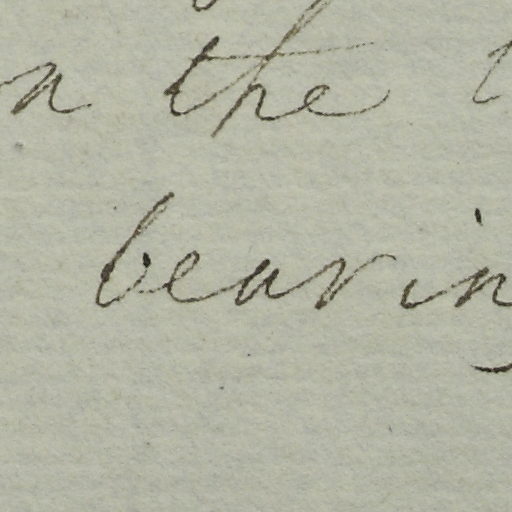 n the
bearin